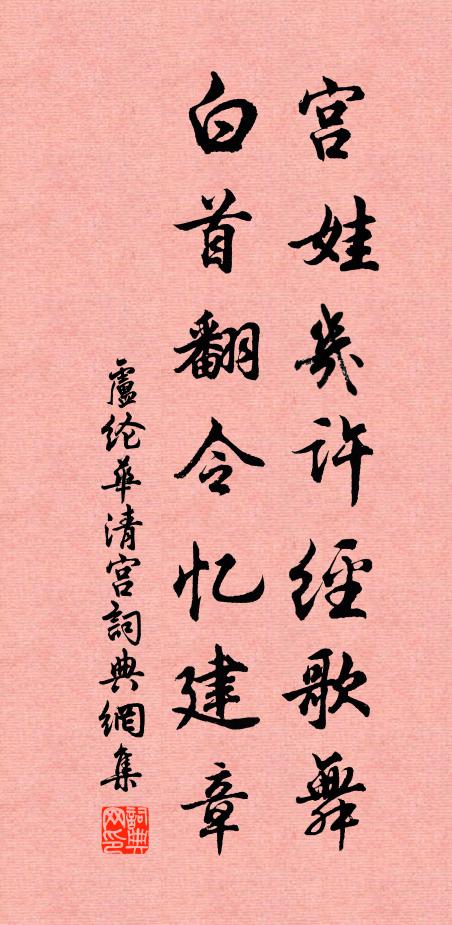 宫娃幾许經歌舞
白首翻令忆建章
盧纶華清宫詞典網集
詞典网印